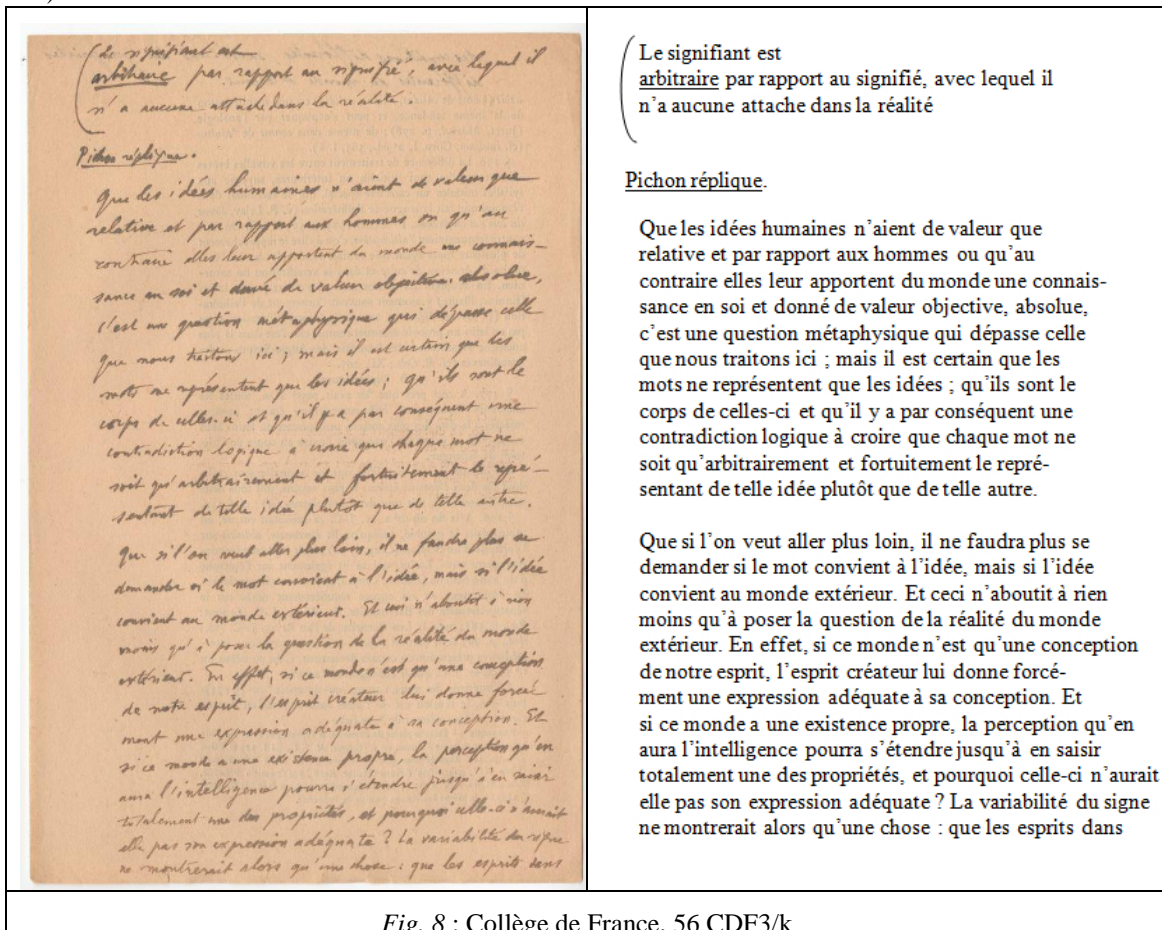 Le signifiant est
arbitraire par rapport au signifié, avec lequel il
n'a aucune attache dans la réalité.
Pichon réplique.
Que les idées humaines n'aient de valeur que
relative et par rapport aux hommes ou qu'au
contraire elles leur apportent du monde une connais-
sance en soi et donné de valeur objective, absolue,
c'est une question métaphysique qui dépasse celle
que nous traitons ici ; mais il est certain que les
mots ne représentent que les idées ; qu'ils sont le
corps de celles-ci et qu'il y a par conséquent une
contradiction logique à croire que chaque mot ne
soit qu'arbitrairement et fortuitement le repré-
sentant de telle idée plutôt que de telle autre.
Que si l'on veut aller plus loin, il ne faudra plus se
demander si le mot convient à l'idée, mais si l'idée
convient au monde extérieur. Et ceci n'aboutit à rien
moins qu'à poser la question de la réalité du monde
extérieur. En effet, si ce monde n'est qu'une conception
de notre esprit, l'esprit créateur lui donne forcé-
ment une expression adéquate à sa conception. Et
si ce monde a une existence propre, la perception qu'en
aura l'intelligence pourra s'étendre jusqu'à en saisir
totalement une des propriétés, et pourquoi celle-ci n'aurait
elle pas son expression adéquate ? La variabilité du signe
ne montrerait alors qu'une chose : que les esprits dans
Le signifiant est
arbitraire par rapport au signifié, avec lequel il
n'a aucune attache dans la réalité
Pichon réplique.
Que les idées humaines n'aient de valeur que
relative et par rapport aux hommes ou qu'au
contraire elles leur apportent du monde une connais-
sance en soi et donné de valeur objective, absolue,
c'est une question métaphysique qui dépasse celle
que nous traitons ici ; mais il est certain que les
mots ne représentent que les idées ; qu'ils sont le
corps de celles-ci et qu'il y a par conséquent une
contradiction logique à croire que chaque mot ne
soit qu'arbitrairement et fortuitement le repré-
sentant de telle idée plutôt que de telle autre.
Que si l'on veut aller plus loin, il ne faudra plus se
demander si le mot convient à l'idée, mais si l'idée
convient au monde extérieur. Et ceci n'aboutit à rien
moins qu'à poser la question de la réalité du monde
extérieur. En effet, si ce monde n'est qu'une conception
de notre esprit, l'esprit créateur lui donne forcé-
ment une expression adéquate à sa conception. Et
si ce monde a une existence propre, la perception qu'en
aura l'intelligence pourra s'étendre jusqu'à en saisir
totalement une des propriétés, et pourquoi celle-ci n'aurait
elle pas son expression adéquate ? La variabilité du signe
ne montrerait alors qu'une chose : que les esprits dans
Fig. 8 : Collège de France, 56 CDF3/k